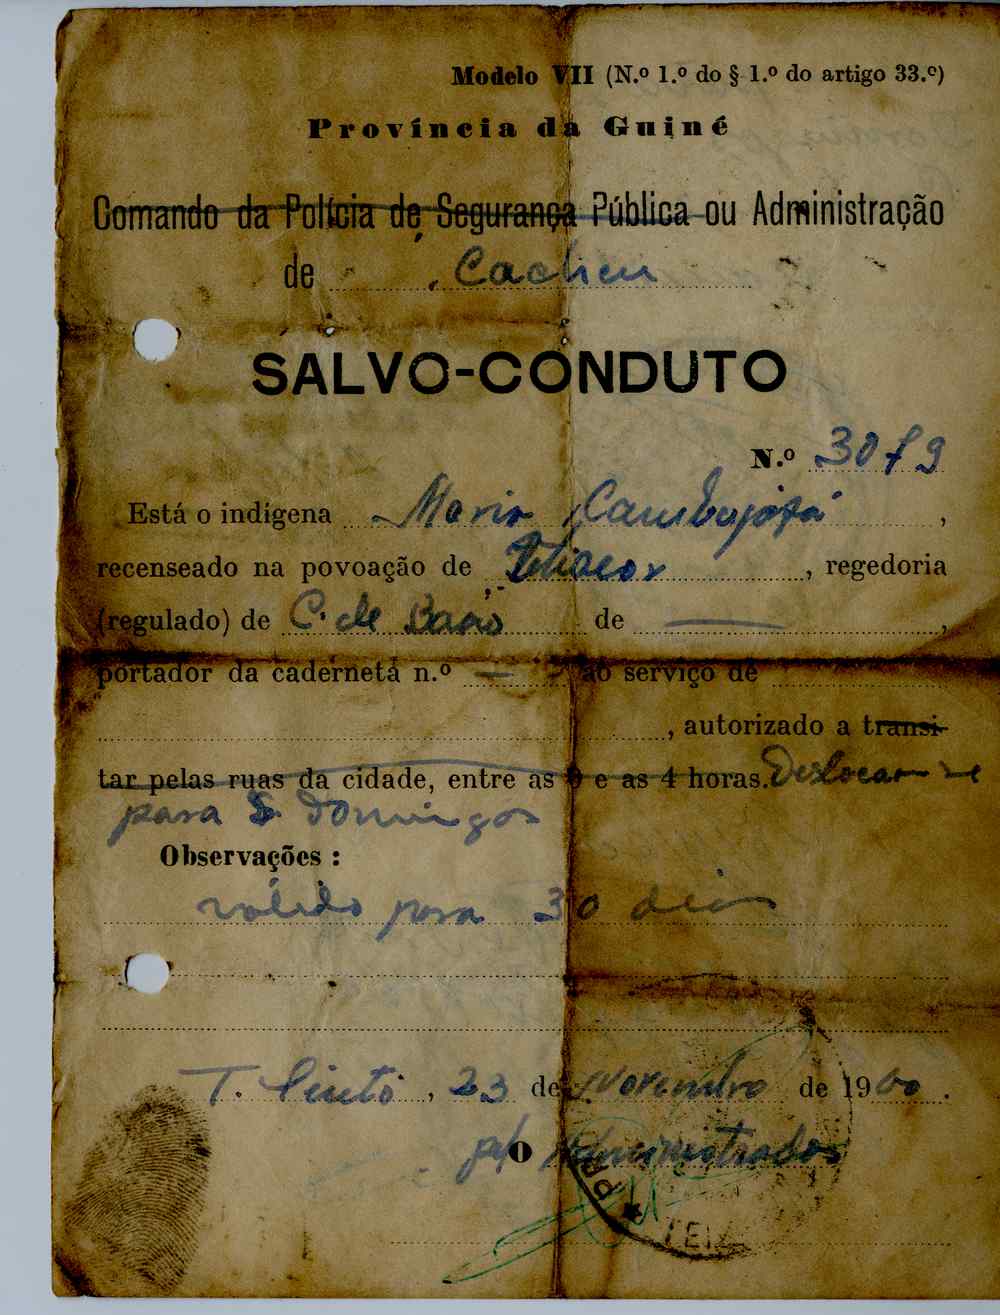 Modelo VII (N.º 1.º do § 1.º do artigo 33.º)
Província da Guiné
Comando da Polícia de Segurança Pública ou Administração
de Cacheu
SALVO-CONDUTO
N.º 3079
Está o indígena Maria ,
recenseado na povoação de , regedoria
(regulado) de C. de Baixo de ,
portador da caderneta n.º — ao serviço de
, autorizado a transi-
tar pelas ruas da cidade, entre as 9 e as 4 horas. Deslocar-se
para S. Domingos
Observações :
válido para 30 dias
T. Pinto, 23 de Novembro de 1960.
p/ O Administrador
TEI